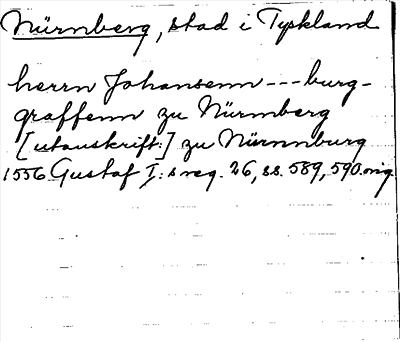 Nürnberg, stad i Tyskland
herrn Johansenn --- burg-
graffenn zu Nürmberg
[utanskrift:] zu Nürnnburg
1556 Gustaf I:s reg. 26, ss. 589, 590. orig.